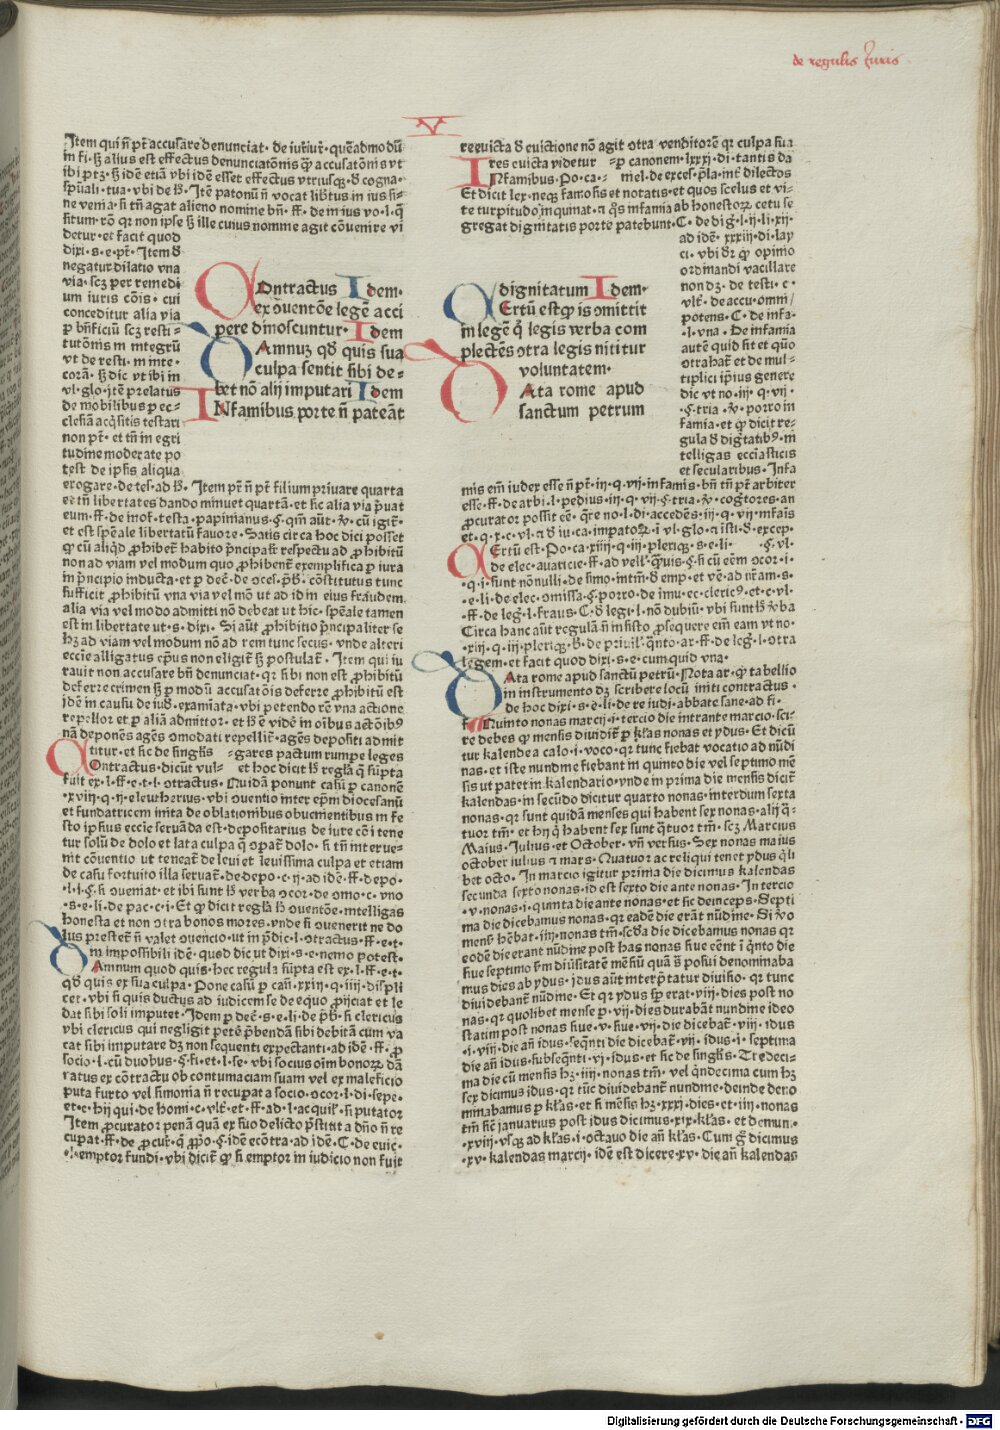 de regulis Juris
V
Item qui n̄ pt̄ accusare denunciat· de iur̄iur̄· quēadmodū
in fi· hʒ alius est effectus denunciatōnis qͥ accusatōnis vt
ibi ptʒ· hʒ idē etiā vbi idē esset effectus vtriusqʒ· de cogna·
sp̄uali· tua· vbi de h̄· Itē patonū n̄ vocat lib̄tus in ius si-
ne venia· si tn̄ agat alieno nomine bn̄· ff· de in ius vo· l· q̄
situm rō qr non ipse hʒ ille cuius nomine agit cōuenire vi
detur· et facit quod
dixi· s· e· pt̄· Item de
negatur dilatio vna
via· scʒ per remedi
um iuris cōis· cui
conceditur alia via
p bn̄ficiū scʒ resti-
tutōnis in integrū
vt de resti· in inte·
corā· hʒ dic vt ibi in
vl· glo· itē prelatus
de mobilibus p ec-
clesiā acq̄sitis testari
non pt̄· et tn̄ in egri
tudine moderate po
test de ipsis aliqua
erogare· de tes· ad h̄· Item pt̄ n̄ pt̄ filium priuare quarta
et tn̄ libertates dando minuet quartā· et sic alia via p̄uat
eum· ff· de inof· testa· papinianus· §· qm̄ aūt· ℣· cū igit̄·
et est sp̄eale libertatū fauore· Satis circa hoc dici posset
qͥ cū aliq̄d p̄hibet̄ habito p̄ncipalr̄ respectu ad p̄hibitū
non ad viam vel modum quo p̄hibent̄ exemplifica p iura
in p̄ncipio inducta· et p decē· de ɔces· p̄b̄· cōstitutus tunc
sufficit p̄hibitū vna via vel mō ut ad id in eius fraudem
alia via vel modo admitti nō debeat ut hic· sp̄eale tamen
est in libertate ut· s· dixi· Si aūt p̄hibitio p̄ncipaliter se
hʒ ad viam vel modum nō ad rem tunc secus· vnde alteri
eccīe alligatus ep̄us non eligit̄ hʒ postulat̄· Item qui iu
rauit non accusare bn̄ denunciat· qr sibi non est p̄hibitū
deferre crimen hʒ p modū accusatōis deferre p̄hibitū est
idē in causū de iud̄· examiata· vbi petendo rē vna actione
repellor et p aliā admittor· et h̄ ē vidē in oībus actōib9
nā deponēs agēs ɔmodati repellit̄· agēs depositi admit
titur· et sic de singlis
Ontractus· dicūt vul-
gares pactum rumpe leges
et hoc dicit h̄ regl̄a q̄ sūpta
fuit ex· l· ff· e· t· l· ɔtractus· Quidā ponunt casū p canonē
·xviij· q· ij· eleutherius· vbi ɔuentio inter ep̄m diocesanū
et fundatricem inita de oblationibus obuenientibus in fe
sto ipsius eccīe seruāda est· depositarius de iure cōi tene
tur solū de dolo et lata culpa q̄ ɔpat̄ dolo· si tn̄ interue-
nit cōuentio ut teneat̄ de leui et leuissima culpa et etiam
de casu fortuito illa seruat̄· de depo· c· ij· ad idē· ff· depo·
·l· j· §· si ɔueniat· et ibi sunt h̄ verba ɔcor· de ɔmo· c· vno
·s· e· li· de pac· c· i· Et qͥ dicit regl̄a h̄ ɔuentōē· intelligas
honesta et non ɔtra bonos mores· vnde si ɔuenerit ne do
lus prestet̄ n̄ valet ɔuencio· ut in p̄dic· l· ɔtractus· ff· e· t·
in impossibili idē· quod dic ut dixi· s· e· nemo potest·
Amnum quod quis· hec regula sūpta est ex· l· ff· e· t·
qd̄ quis ex sua culpa· Pone casū p can̄· xxiij· q· iiij· displi
cet· vbi si quis ductus ad iudicem se de equo p̄ijciat et le
dat sibi soli imputet· Idem p decē· s· e· li· de p̄b̄· si clericus
vbi clericus qui negligit petē p̄bendā sibi debitā cum va
cat sibi imputare dʒ non sequenti expectanti· ad idē· ff· p̄
socio· l· cū duobus· §· si· et· l· se· vbi socius oīm bonoꝝ dā
ratus ex cōtractu ob contumaciam suam vel ex maleficio
puta furto vel simonia n̄ recupat a socio· ɔcor· l· di· sepe·
et· c· hij qui· de homi· c· vlt̄· et· ff· ad· l· acquil̄· si putator
Item p̄curator penā quā ex suo delicto p̄stitit a dn̄o n̄ re
cupat· ff· de p̄cur̄· q̄ p̄po· §· idē ecōtra· ad idē· C· de euic·
·l· emptor fundi· vbi dicit̄ qͥ si emptor in iudicio non fuit
Ontractus Idem·
ex ɔuentōe legē acci
pere dinoscuntur· Idem
Amnuʒ qd̄ quis sua
culpa sentit sibi de-
bet nō alij imputari Idem
INfamibus porte n̄ pateāt
dignitatum Idem·
Ertū estqͥ is ɔmittit
in legē q̄ legis verba com
plectēs ɔtra legis nititur
voluntatem·
Ata rome apud
sanctum petrum
reeuicta de euictione nō agit ɔtra venditorē qr culpa sua
res euicta videtur
INfamibus· Po· ca·
p canonem· lxxxj· di· tantis da
mel· de exces· p̄la· int̄ dilectos
Et dicit lex· neqʒ famosis et notatis· et quos scelus et vi-
te turpitudo inquinat· ⁊ q̄s infamia ab honestoꝝ cetu se
gregat dignitatis porte patebunt· C· de diḡ· l· ij· li· xij·
ad idē· xxxiij· di· lay
ci· vbi dr̄ qͥ opinio
ordinandi vacillare
non dʒ· de testi· c·
vlt̄· de accu· omni
potens· C· de infa·
·l· vna· De infamia
autē quid sit et quō
ɔtrahat̄ et de mul-
tiplici ipīus genere
dic vt no· iij· q· vij·
·§· tria· ℣· porro in
famia· et qͥ dicit re-
gula de diḡtatib9· in
telligas ecciasticis
et secularibus· Infa
mis em̄ iudex esse n̄ pt̄· iij· q· vij· infamis· bn̄ tn̄ pt̄ arbiter
esse· ff· de arbi· l· pedius· iij· q· vij· §· tria· ℣· coḡtores· an
p̄curator possit eē· q̄re no· l· di· accedēs· iij· q· vij· infāis
et· q· x· c· vl· ⁊ de iu· ca· impatoꝝ· i· vl· glo· ⁊ isti· de excep·
Ertū est· Po· ca· xiiij· q· iij· pleriqʒ· s· e· li·
·§· vl·
de elec· auaricie· ff· ad vell̄· q̄uis· §· si cū eēm ɔcor· i·
·q· i· sunt nōnulli· de simo· intm̄· de emp· et vē· ad nr̄am· s·
·e· li· de elec· ɔmissa· §· porro· de imu· ec· cleric9· et· c· vl·
·ff· de leḡ· l· fraus· C· de legi· l· nō dubiū· vbi sunt h̄ v̄ba
Circa hanc aūt regulā n̄ insisto p̄sequere em̄ eam vt no·
·xiij· q· iij· pleriqʒ· de· de priuil̄· q̄nto· ar· ff· de leḡ· l· ɔtra
legem· et facit quod dixi· s· e· cum quid vna·
Ata rome apud sanctū petrū· Nota ar· qͥ tabellio
in instrumento dʒ scribere locū initi contractus·
de hoc dixi· s· e· li· de re iudi· abbate sane· ad fi·
¶ Quinto nonas marcij· i· tercio die intrante marcio· sci-
re debes qͥ mensis diuidit̄ p kl̄as nonas et ydus· Et dicū
tur kalende a calo· i· voco· qr tunc fiebat vocatio ad nūdi
nas· et iste nundine fiebant in quinto die vel septimo mē
sis ut patet in kalendario· vnde in prima die mensis dicit̄
kalendas· in secūdo dicitur quarto nonas· interdum sexta
nonas· qr sunt quidā menses qui habent sex nonas· alij q̄-
tuor tm̄· et hij q̄ habent sex sunt q̄tuor tm̄· scʒ Marcius
Maius· Iulius· et October· vn̄ versus· Sex nonas maius
october iulius ⁊ mars· Quatuor ac reliqui tenet ydus q̄li
bet octo· In marcio igitur prima die dicimus kalendas
secunda sexto nonas· id est sexto die ante nonas· In tercio
·v· nonas· i· quinta die ante nonas· et sic deinceps· Septi
ma die dicebamus nonas· qr eadē die erāt nūdine· Si v̄o
mens̄ hēbat· iiij· nonas tm̄· sc̄da die dicebamus nonas qr
eodē die erant nūdine post has nonas siue eēnt i q̄nto die
siue septimo fm̄ diūsitatē mēsiū quā s̄ posui denominaba
mus dies ab ydus· jdus aūt interp̄tatur diuisio· qr tunc
diuidebant̄ nūdine· Et qr ydus sp̄ erat· viij· dies post no
nas· qr quolibet mense p· vij· dies durabāt nundine ideo
statim post nonas siue· v· siue· vij· die dicebat̄· viij· idus
·i· viij· die an̄ idus· seq̄nti die dicebat̄· vij· idus· i· septima
die an̄ idus· subseq̄nti· vj· idus· et sic de singlis· Tredeci-
ma die cū mensis hʒ· iiij· nonas tm̄· vel q̄ndecima cum hʒ
sex dicimus idus· qr tūc diuidebant̄ nundine· deinde deno
minabamus p kl̄as· et si mēsis hʒ· xxxj· dies· et iiij· nonas
tm̄ sic̄ ianuarius post idus dicimus· xix· kl̄as· et demum·
·xviij· vsqʒ ad kl̄as· i· octauo die an̄ kl̄as· Cum q̄ dicimus
·xv· kalendas marcij· idē est dicere· xv· die an̄ kalendas
Digitalisierung gefördert durch die Deutsche Forschungsgemeinschaft - DFG